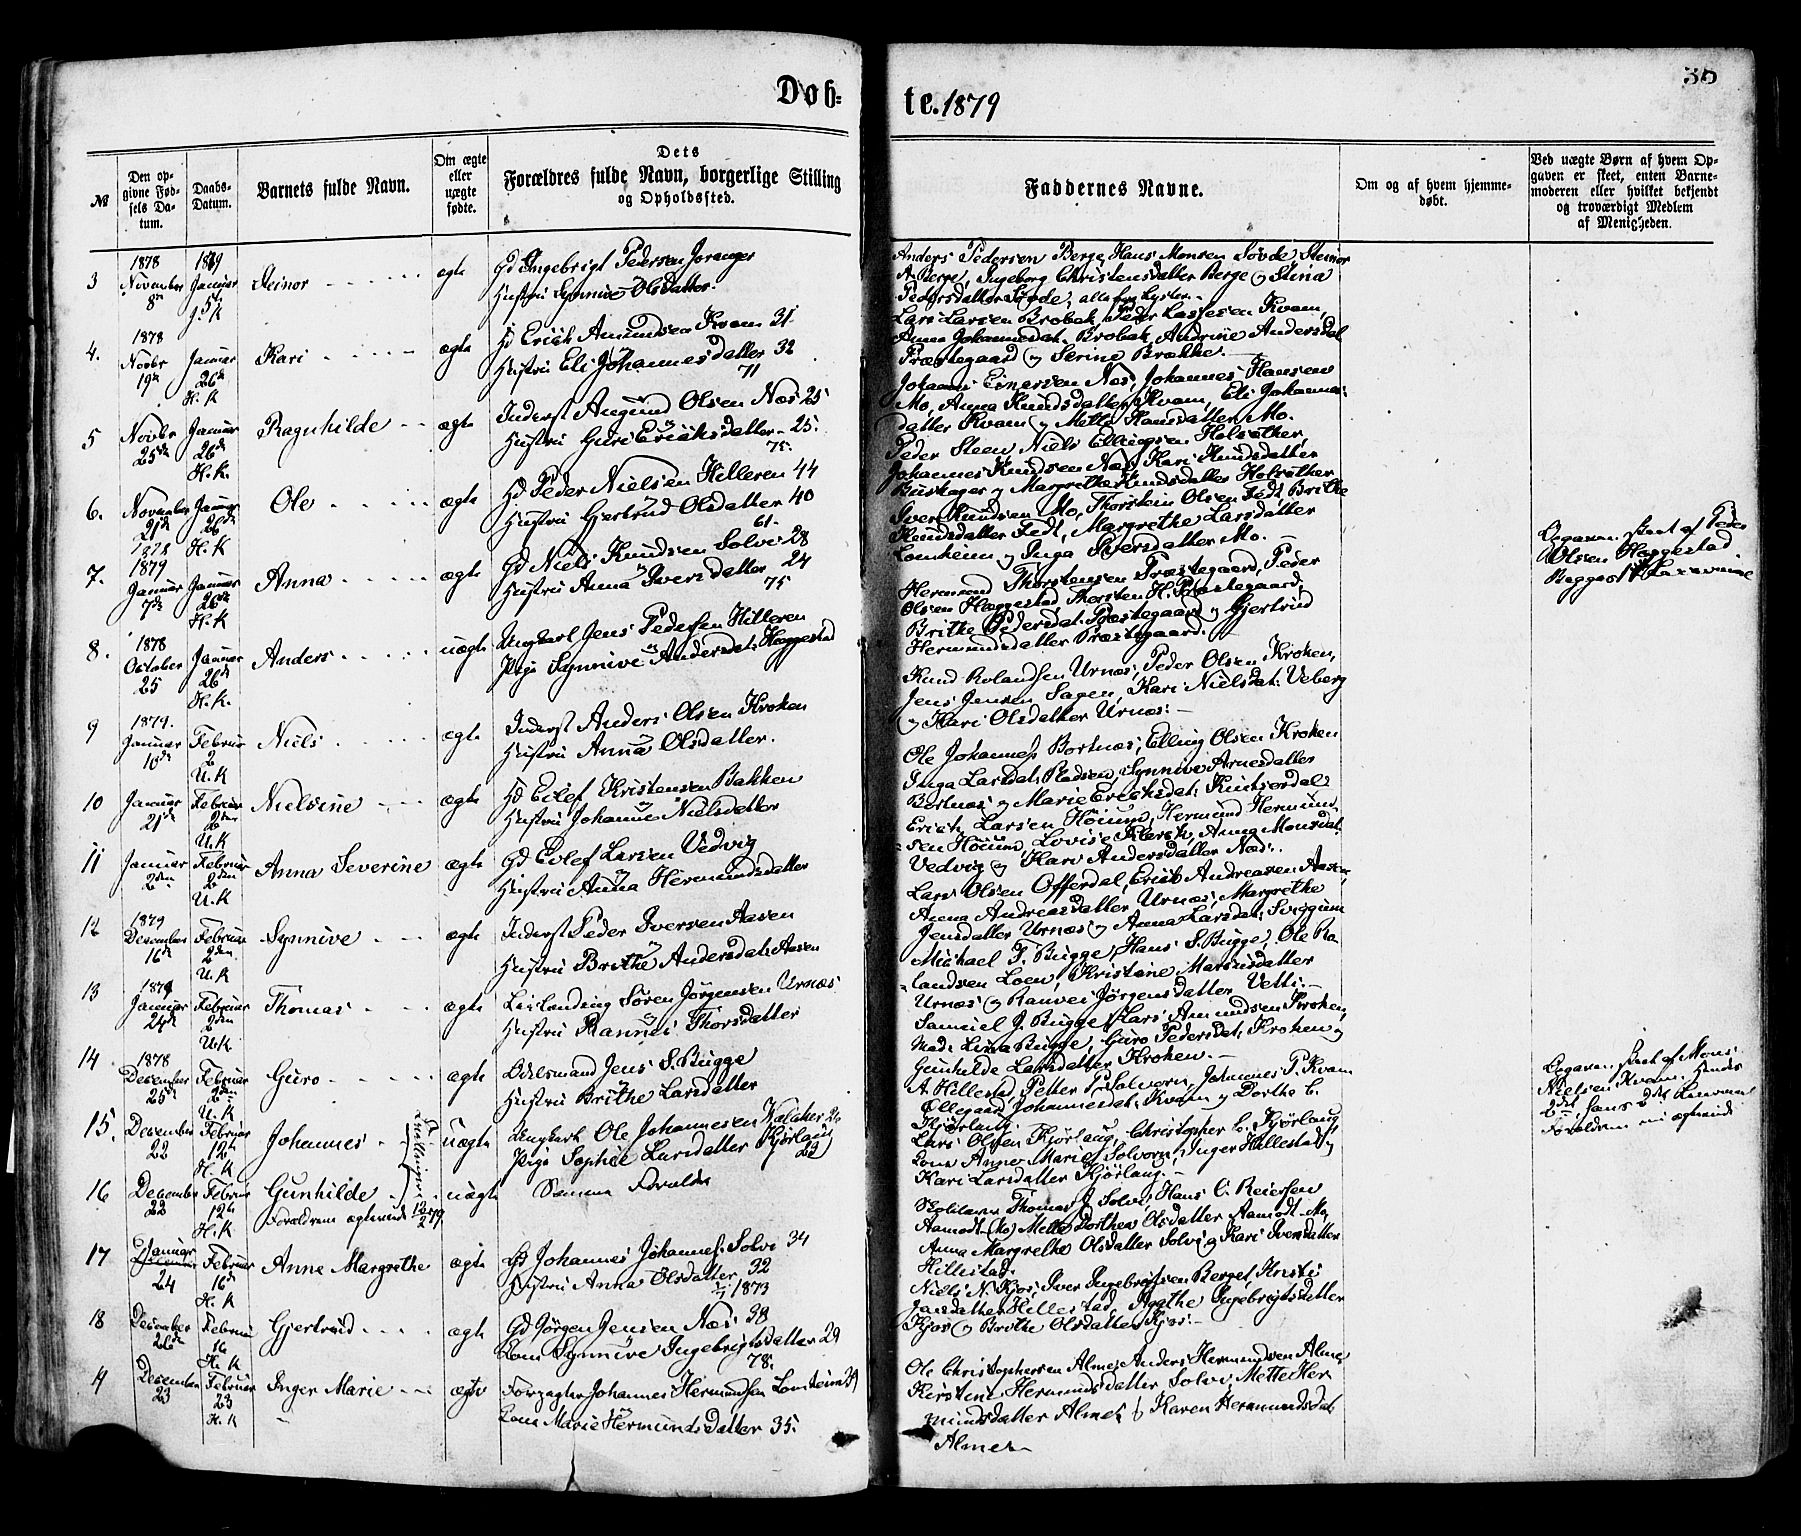 Døb=
te. 1879
35
№
Den op-
givne Fød-
sels Da-
tum.
Daabs-
Datum.
Barnets fulde Navn.
Om ægte
eller
uægte
fødte.
Dets
Forældres fulde Navn, borgerlige Stilling
og Opholdssted.
Faddernes Navne.
Om og af hvem hjemme-
døbt.
Ved uægte Børn af hvem Op-
gaven er skeet, enten Barne-
moderen eller hvilket bekjendt
og troværdigt Medlem
af Menigheden.
3
1878
November
8
1879
Januar
5
J. K
Steinor
ægte
Gd Ingebrigt Pedersen Joranger
Hustru Synnive Olsdatter.
Anders Pedersen Berge, Hans Monsen Søvde Steinor
A. Berge, Ingeborg Christensdatter Berge og Stina
Pedersdatter Søvde, alle fra Lyster.
4.
1878
Novbr
19de
Januar
26de
H. K
Kari
ægte
Gd Erich Amundsen Kvam 31
Hustru Eli Johannesdatter 32
71
Lars Larsen Brobak, Peder Lassesen Kvam,
Anna Johannesdat. Brobak, Andrine Andersdat
Præstegaard og Serine Brække.
5
Novbr
25de
Januar
26de
H. K.
Ragnhilde
ægte
Inderst Amund Olsen Næs 25
Hustru Guri Erichsdatter 25.
75.
Johannes Einersen Næs, Johannes Hansen
Mo, Anna Knudsdatter Kvam, Eli Johannes-
datter Kvam og Mette Hansdatter Mo.
6.
November
21de
1878
Januar
26de
H. K
Ole
ægte
Gd Peder Nielsen Hilleren 44
Hustru Gjertrud Olsdatter 40
61.
Peder Steen, Niels Ellingsen Holsether,
Johannes Knudsen Næs, Kari Knudsdatter
Buskager og Margrethe Knudsdatter Holsether
7.
1879
Januar
7de
Januar
26de
H. K
Anna
ægte
Gd Niels Knudsen Solvi 28
Hustru Anna Iversdatter 24
75
Iver Knudsen Mo, Thorstein Olsen Fedt, Brithe
Knudsdatter Fedt, Margrethe Larsdatter
Lomheim og Inga Iversdatter Mo.
8.
1878
October
25
Januar
26de
H. K.
Anders
uægte
Ungkarl Jens Pedersen Hilleren
Pige Synnive Andersdat: Haggestad
Hermund Thorstensen Præstegaard, Peder
Olsen Haggestad, Thorsten H. Præstegaard,
Brithe Pedersdat: Præstegaard og Gjertrud
Hermundsdatter Præstegaard.
Opgaven skeet af Peder
Olsen Haggestad.
Begges 1
9
1879.
Januar
10de
Februar
2
U. K
Niels
ægte
Inderst Anders Olsen Kroken
Hustru Anna Olsdatter.
Knud Rolandsen Urnæs, Peder Olsen Kroken,
Jens Jensen Sagen, Kari Nielsdat: Veberg
og Kari Olsdatter Urnæs.
10
Januar
21de
Februar
2den
U. K
Nielsine
ægte
Gd Eilef Kristensen Bakken
Hustru Johanne Nielsdatter
Ole Johannes Bortnæs, Elling Olsen Kroken
Inga Larsdat:, Synnive Arnesdatter
Bortnæs og Marie Erichsdat:
11
Januar
2den
Februar
2den
U. K
Anna Severine
ægte
Gd Eilef Larsen Vedvig
Hustru Anna Hermundsdatter
Erich Larsen Høium, Hermund Hermund-
sen Høium, Lovise Klerck, Anna Monsdat.
Vedvig og Kari Andersdatter Næs.
12
1879
December
16de
Februar
2den
U. K
Synnive
ægte
Inderst Peder Iversen Aasen
Hustru Brithe Andersdat: Aasen
Lars Olsen Offerdal, Erich Andreassen Aasen,
Anna Andreasdatter Urnæs, Margrethe
Jensdatter Urnæs og Anna Larsdat:
13
1879
Januar
24de
Februar
2den
U. K.
Thomas
ægte
Leilænding Søren Jørgensen Urnæs
Hustru Rannei Thorsdatter
Michael F. Bugge, Hans S. Bugge, Ole Ro-
landsen Loen, Kristine
Urnæs og Ranvei Jørgensdatter Vetti.
14
1878
December
25de
Februar
2den
U. K
Guro
ægte
Odelsmand Jens S. Bugge
Hustru Brithe Larsdatter
Samuel J. Bugge, Lars Amundsen Kroken,
Mad. Lina Bugge, Guro Pedersdat: Kroken og
Gunhilde Larsdatter Kroken.
15.
December
22
Februar
12te
H. K
Johannes
Tvillinger
uægte
Ungkarl Ole Johannesen Kalaker 26
Pige Sophie Larsdatter Kjørlaug
23
A. Hillestad, Petter P. Solvorn, Johannes P. Kvam
Ellegaard Johannesdat: Kvam og Dorthe C.
Kjørlaug.
Opgaven skeet af Mons
Nielsen Kvam. Hendes
2det, hans 2det
Forældrene nu ægteviede
16
December
22
Februar
12te
H. K
Gunhilde
Forældrene ægteviede 12/2 79
uægte
Samme Forældre
Lars Olsen Kjørlaug, Christopher C. Kjørlaug
Kona Anne Marie Solvorn, Inger Hillestad og
Kari Larsdatter Kjørlaug.
17
Januar
December
24
Februar
16de
H. K
Anne Margrethe
ægte
Gd Johannes Johannes. Solvi 34
Hustru Anna Olsdatter 32
1873
Thomas J. Solvi, Hans C. Reiersen
Aamodt Mette Dorthea Olsdatter Aamodt
Anna Margrethe Olsdatter Solvi og Kari Iversdatter
Hillestad.
18
December
26de
Februar
16
H. K
Gjertrud
ægte
Gd Jørgen Jensen Næs 38
Kona Synnive Ingebrigtsdatter 29
78.
Niels N. Kjos, Iver Ingebrigtsen Berget, Kristi
Jansdatter Hillestad, Agathe Ingebrigtsdatter
Kjos og Brithe Olsdatter Kjos.
December
23
Februar
23
H. K
Inger Marie
ægte
Forpagter Johannes Hermundsen Lomheim 39
Kona Marie Hermundsdatter 35.
Ole Christophersen Alme, Anders Hermundsen Alme,
Kirstine Hermundsdatter Solvi, Mette Her
mundsdatter Alme og Karen Hermundsdat
Alme.